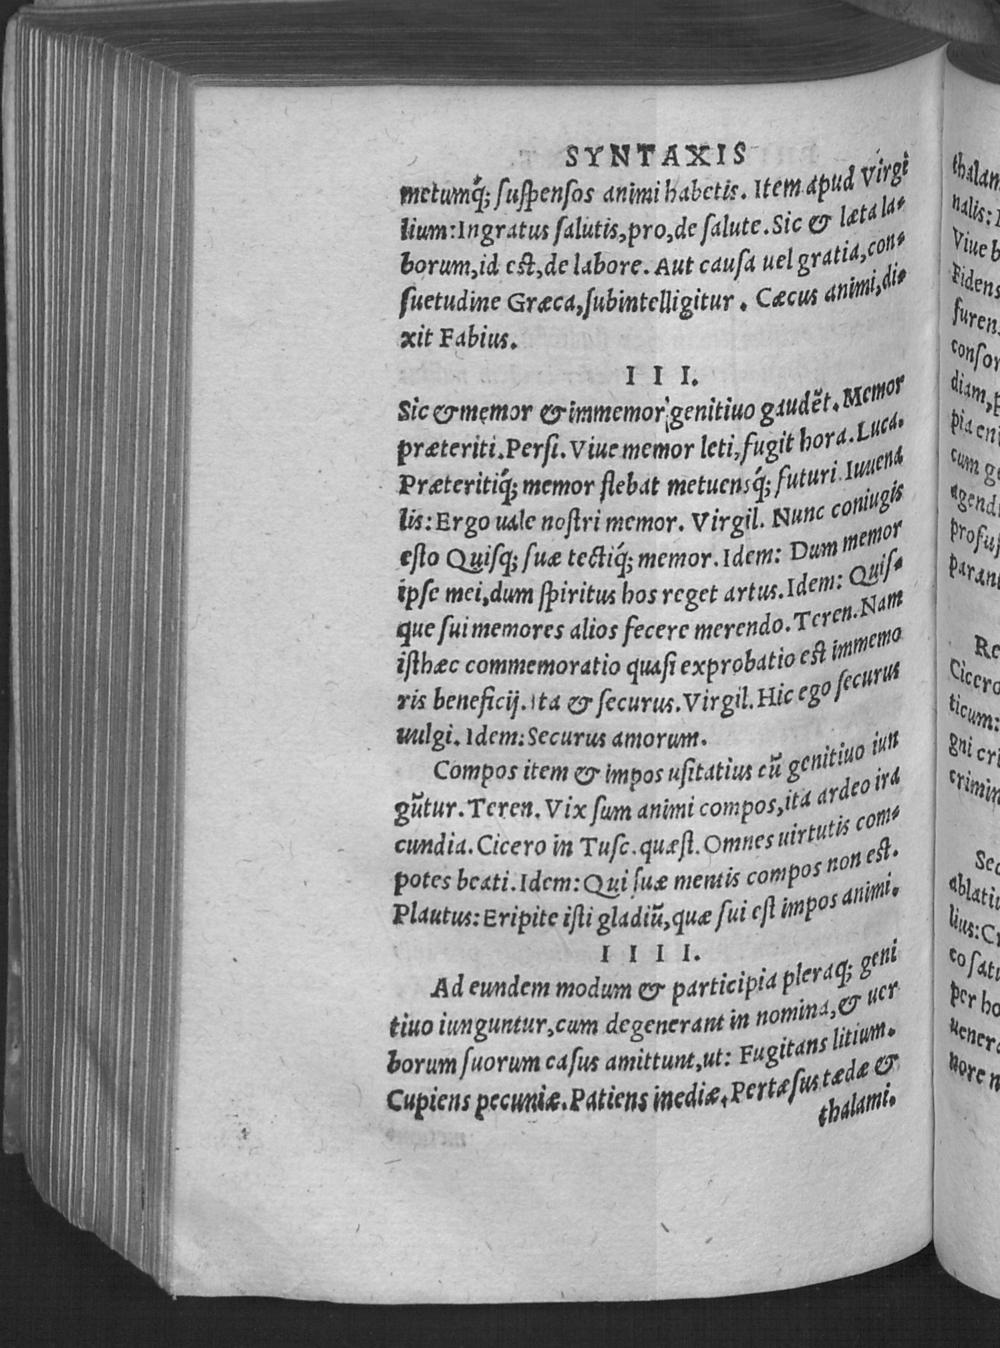 SYNTAXIS
metumq́; ſuſpenſos animi habetis. Item apud Virgi
lium: Ingratus ſalutis, pro, de ſalute. Sic & læta la-
borum, id eſt, de labore. Aut cauſa uel gratia, con-
ſuetudine Græca, ſubintelligitur. Cæcus animi, di-
xit Fabius.
III.
Sic & memor & immemor genitiuo gaudẽt. Memor
præteriti. Perſi. Viue memor leti, fugit hora. Luca.
Præteritiq́; memor flebat metuensq́; futuri. Iuuena
lis: Ergo uale noſtri memor. Virgil. Nunc coniugis
eſto Quiſq; ſuæ tectiq́; memor. Idem: Dum memor
ipſe mei, dum ſpiritus hos reget artus. Idem: Quiſ-
que ſui memores alios fecere merendo. Teren. Nam
iſthæc commemoratio quaſi exprobatio eſt immemo
ris beneficij. Ita & ſecurus. Virgil. Hic ego ſecurus
uulgi. Idem: Securus amorum.
Compos item & impos uſitatius cũ genitiuo iun
gũtur. Teren. Vix ſum animi compos, ita ardeo ira
cundia. Cicero in Tuſc. quæſt. Omnes uirtutis com-
potes beati. Idem: Qui ſuæ mentis compos non eſt.
Plautus: Eripite iſti gladiũ, quæ ſui eſt impos animi.
IIII.
Ad eundem modum & participia pleraq; geni
tiuo iunguntur, cum degenerant in nomina, & uer
borum ſuorum caſus amittunt, ut: Fugitans litium.
Cupiens pecuniæ. Patiens inediæ. Pertæſus tædæ &
thalami.
thalam
nalis:
Viue
Fidens
furen
conſor
diam,
pia eni
cum ge
agendi
profuſ
paran
Re
Cicero
ticum:
gni cri
crimin
Sec
ablatiu
lius: C
co ſatu
per ho
uenera
nore